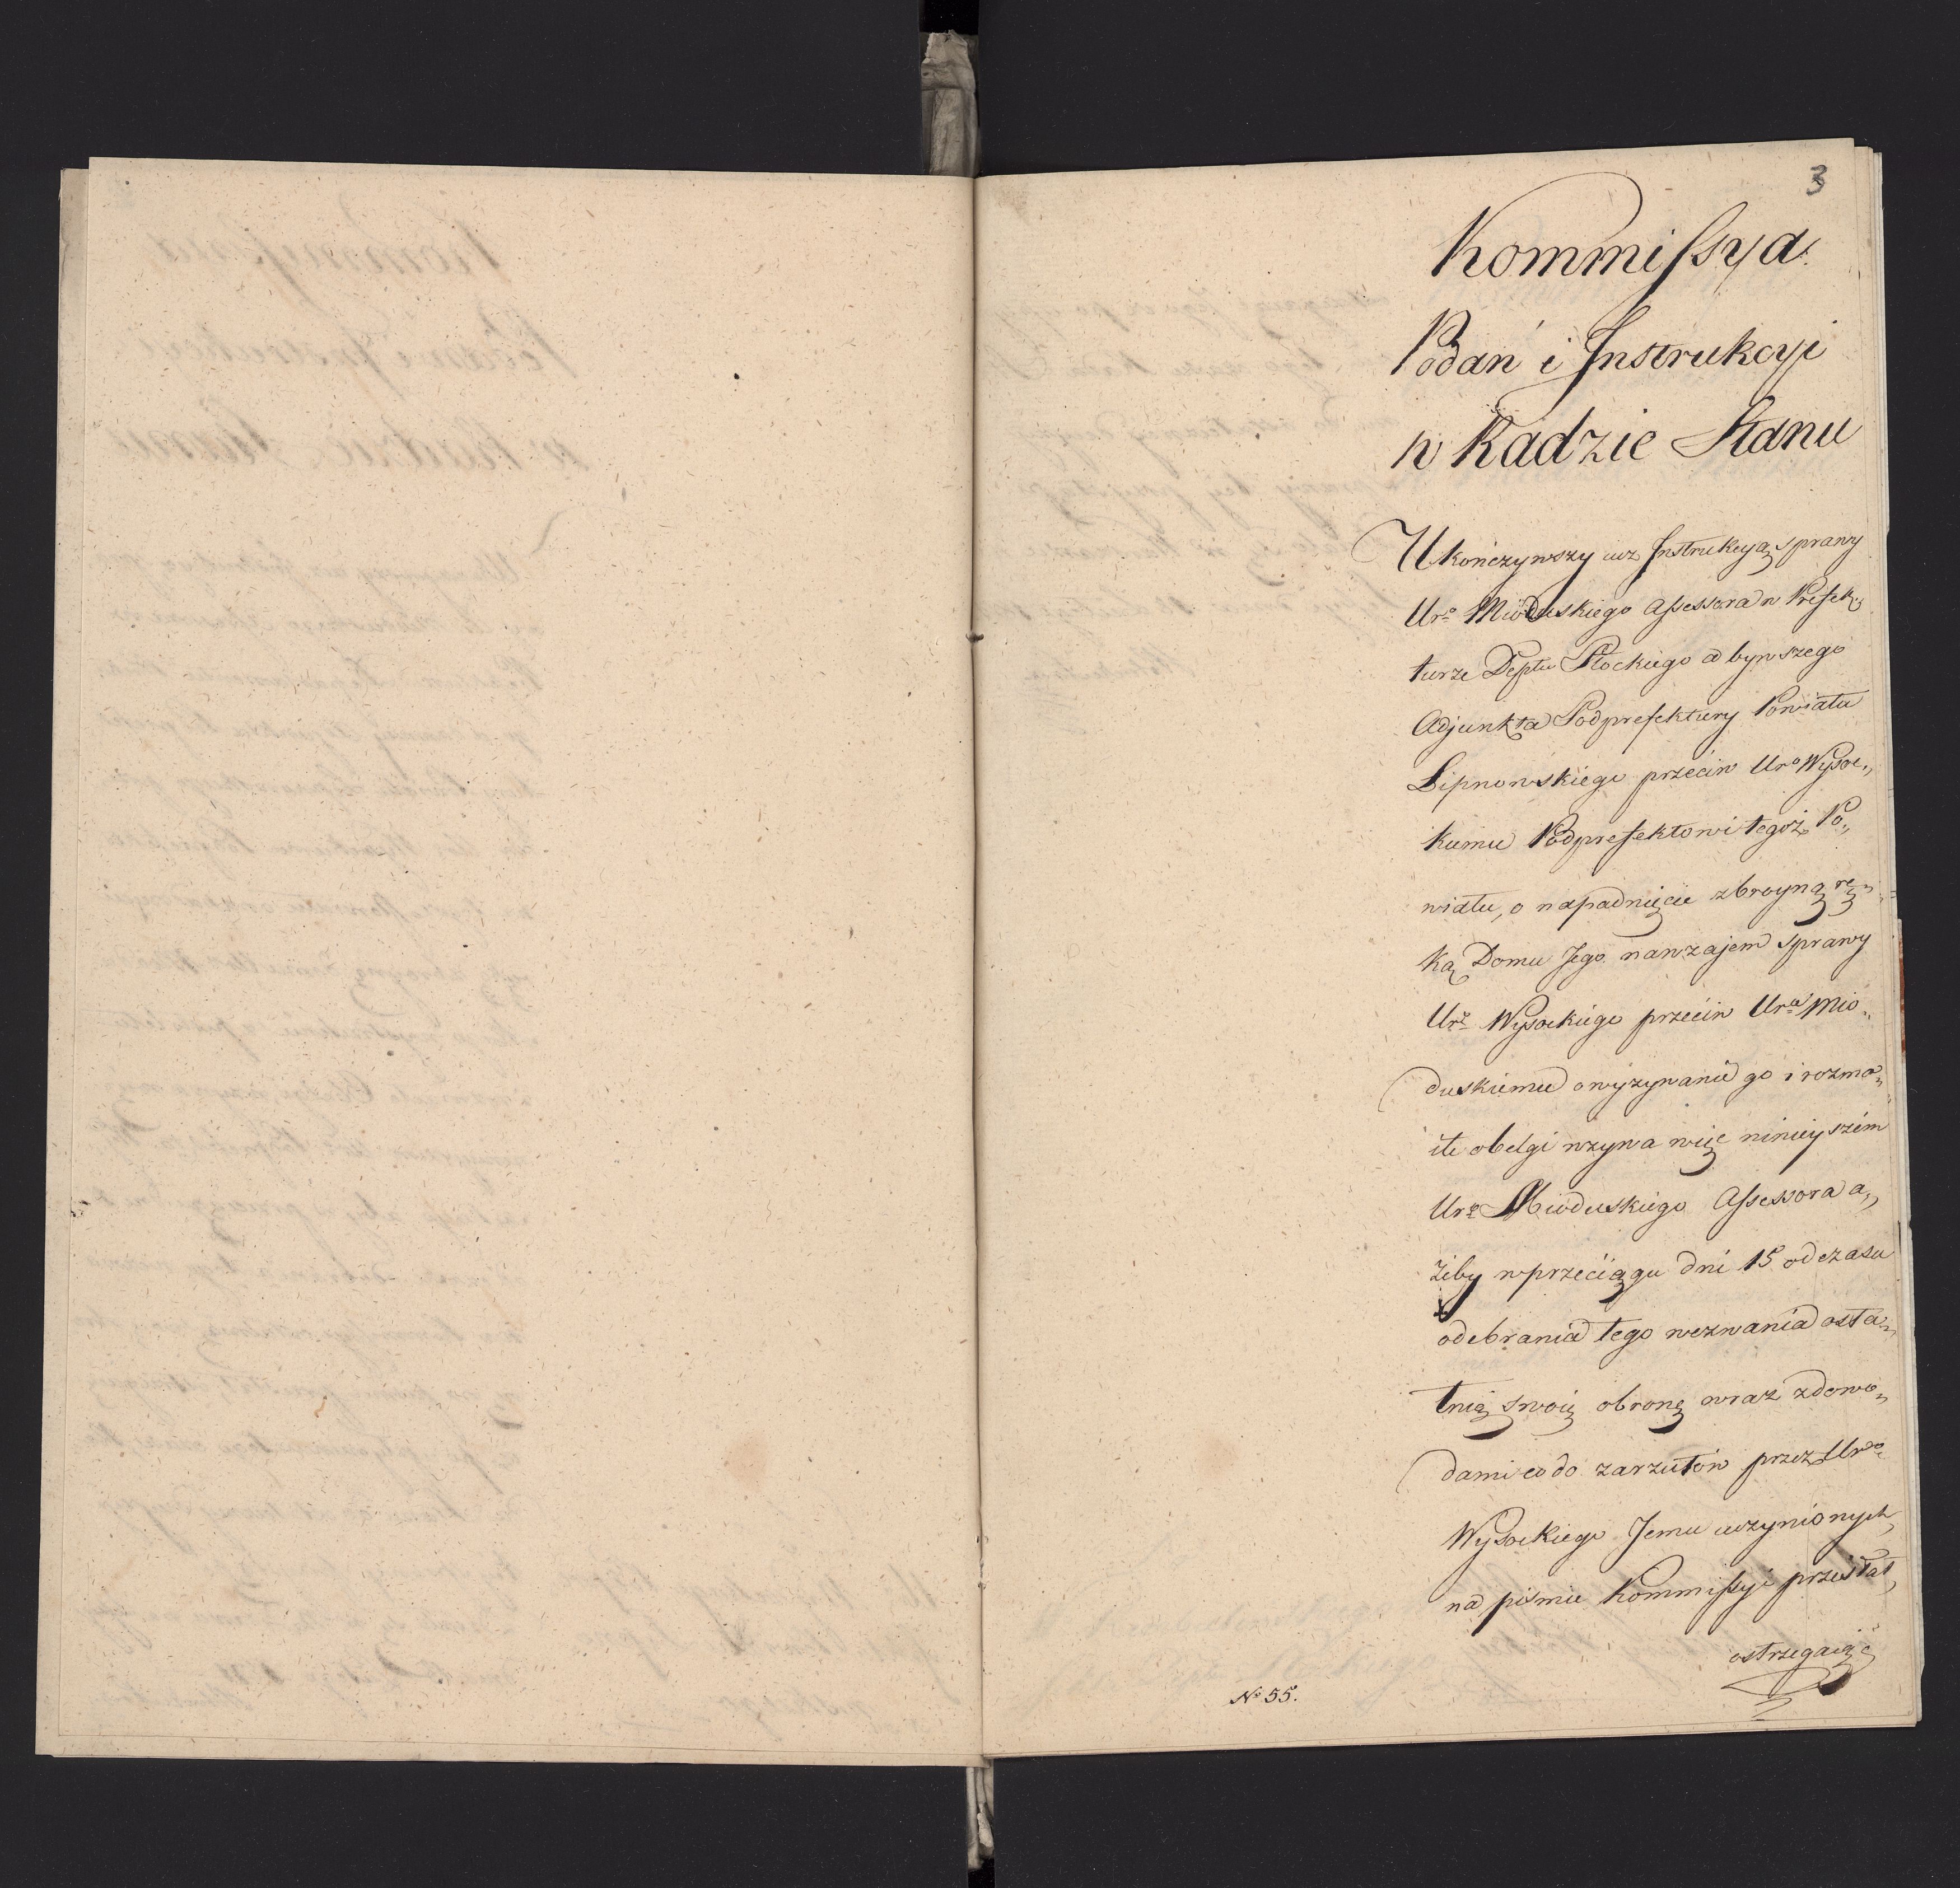 3
Kommissya
Podań i Instrukcyi
w Radzie Stanu
Ukończywszy iuż Instrukcyą sprawy
Uro Mioduskiego Assessora w Prefek„
turze Deptu Płockiego a bywszego
Adjunkta Podprefektury Powiatu
Lipnowskiego przeciw Uro Wysoc„
kiemu Podprefektowi tegoż Po„
wiatu, o napadnięcie zbroyną rę„
ką Domu Jego nawzajem sprawy
Uro Wysockiego przeciw Uru Mio„
duskiemu o wyzywanie go i rozma„
ite obelgi wzywa więc ninieyszém
Uro Mioduskiego Assessora a„
żeby w przeciągu dni 15 od czasu
odebrania tego wezwania osta„
tnią swoię obronę wraz z dowo„
dami co do zarzutów przez Uro
Wysockiego Jemu uczynionych,
na piśmie Kommissyi przesłał,
ostrzegaiąc
No 55.